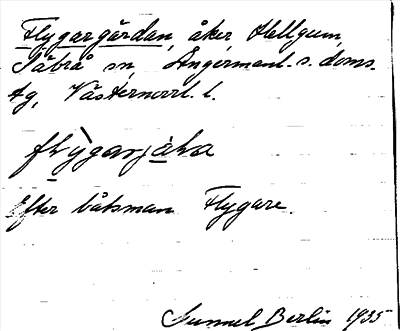 Flygargårdan, åker, Hellgum,
Säbrå sn, Ångermanl. s. doms.
tg, Västernorrl. l.
Efter båtsman Flygare.
Gunnel Berlin 1935